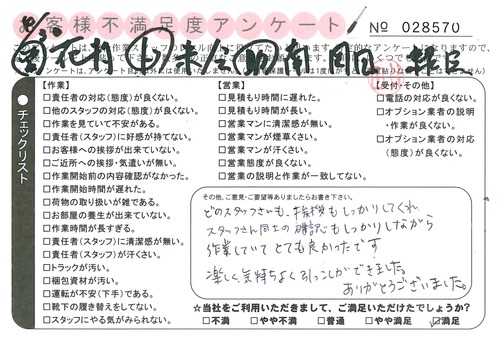 お客様不満足度アンケート
№ 028570
チェックリスト
【作業】
□責任者の対応(態度)が良くない。
□他のスタッフの対応(態度)が良くない。
□作業を見ていて不安がある。
□責任者(スタッフ)に好感が持てない。
□お客様への挨拶が出来ていない。
□ご近所への挨拶・気遣いが無い。
□作業開始前の内容確認がなかった。
□作業開始時間が遅れた。
□荷物の取り扱いが雑である。
□お部屋の養生が出来ていない。
□作業時間が長すぎる。
□責任者(スタッフ)に清潔感が無い。
□責任者(スタッフ)が汗くさい。
□トラックが汚い。
□梱包資材が汚い。
□運転が不安(下手)である。
□靴下の履き替えをしてない。
□スタッフにやる気がみられない。
【営業】
□見積もり時間に遅れた。
□見積もり時間が長い。
□営業マンに清潔感が無い。
□営業マンが煙草くさい。
□営業マンが汗くさい。
□営業態度が良くない。
□営業の説明と作業が一致してない。
【受付・その他】
□電話の対応が良くない。
□オプション業者の説明
・作業が良くない。
□オプション業者の対応
(態度)が良くない。
その他、ご意見・ご要望等ありましたらお書き下さい。
どのスタッフさんも、挨拶もしっかりしてくれ、
スタッフさん同士の確認もしっかりしながら
作業していてとても良かったです!
楽しく、気持ちよく引っこしができました。
ありがとうございました。
☆当社をご利用いただきまして、ご満足いただけたでしょうか?
□不満 □やや不満 □普通 □やや満足 ☑満足